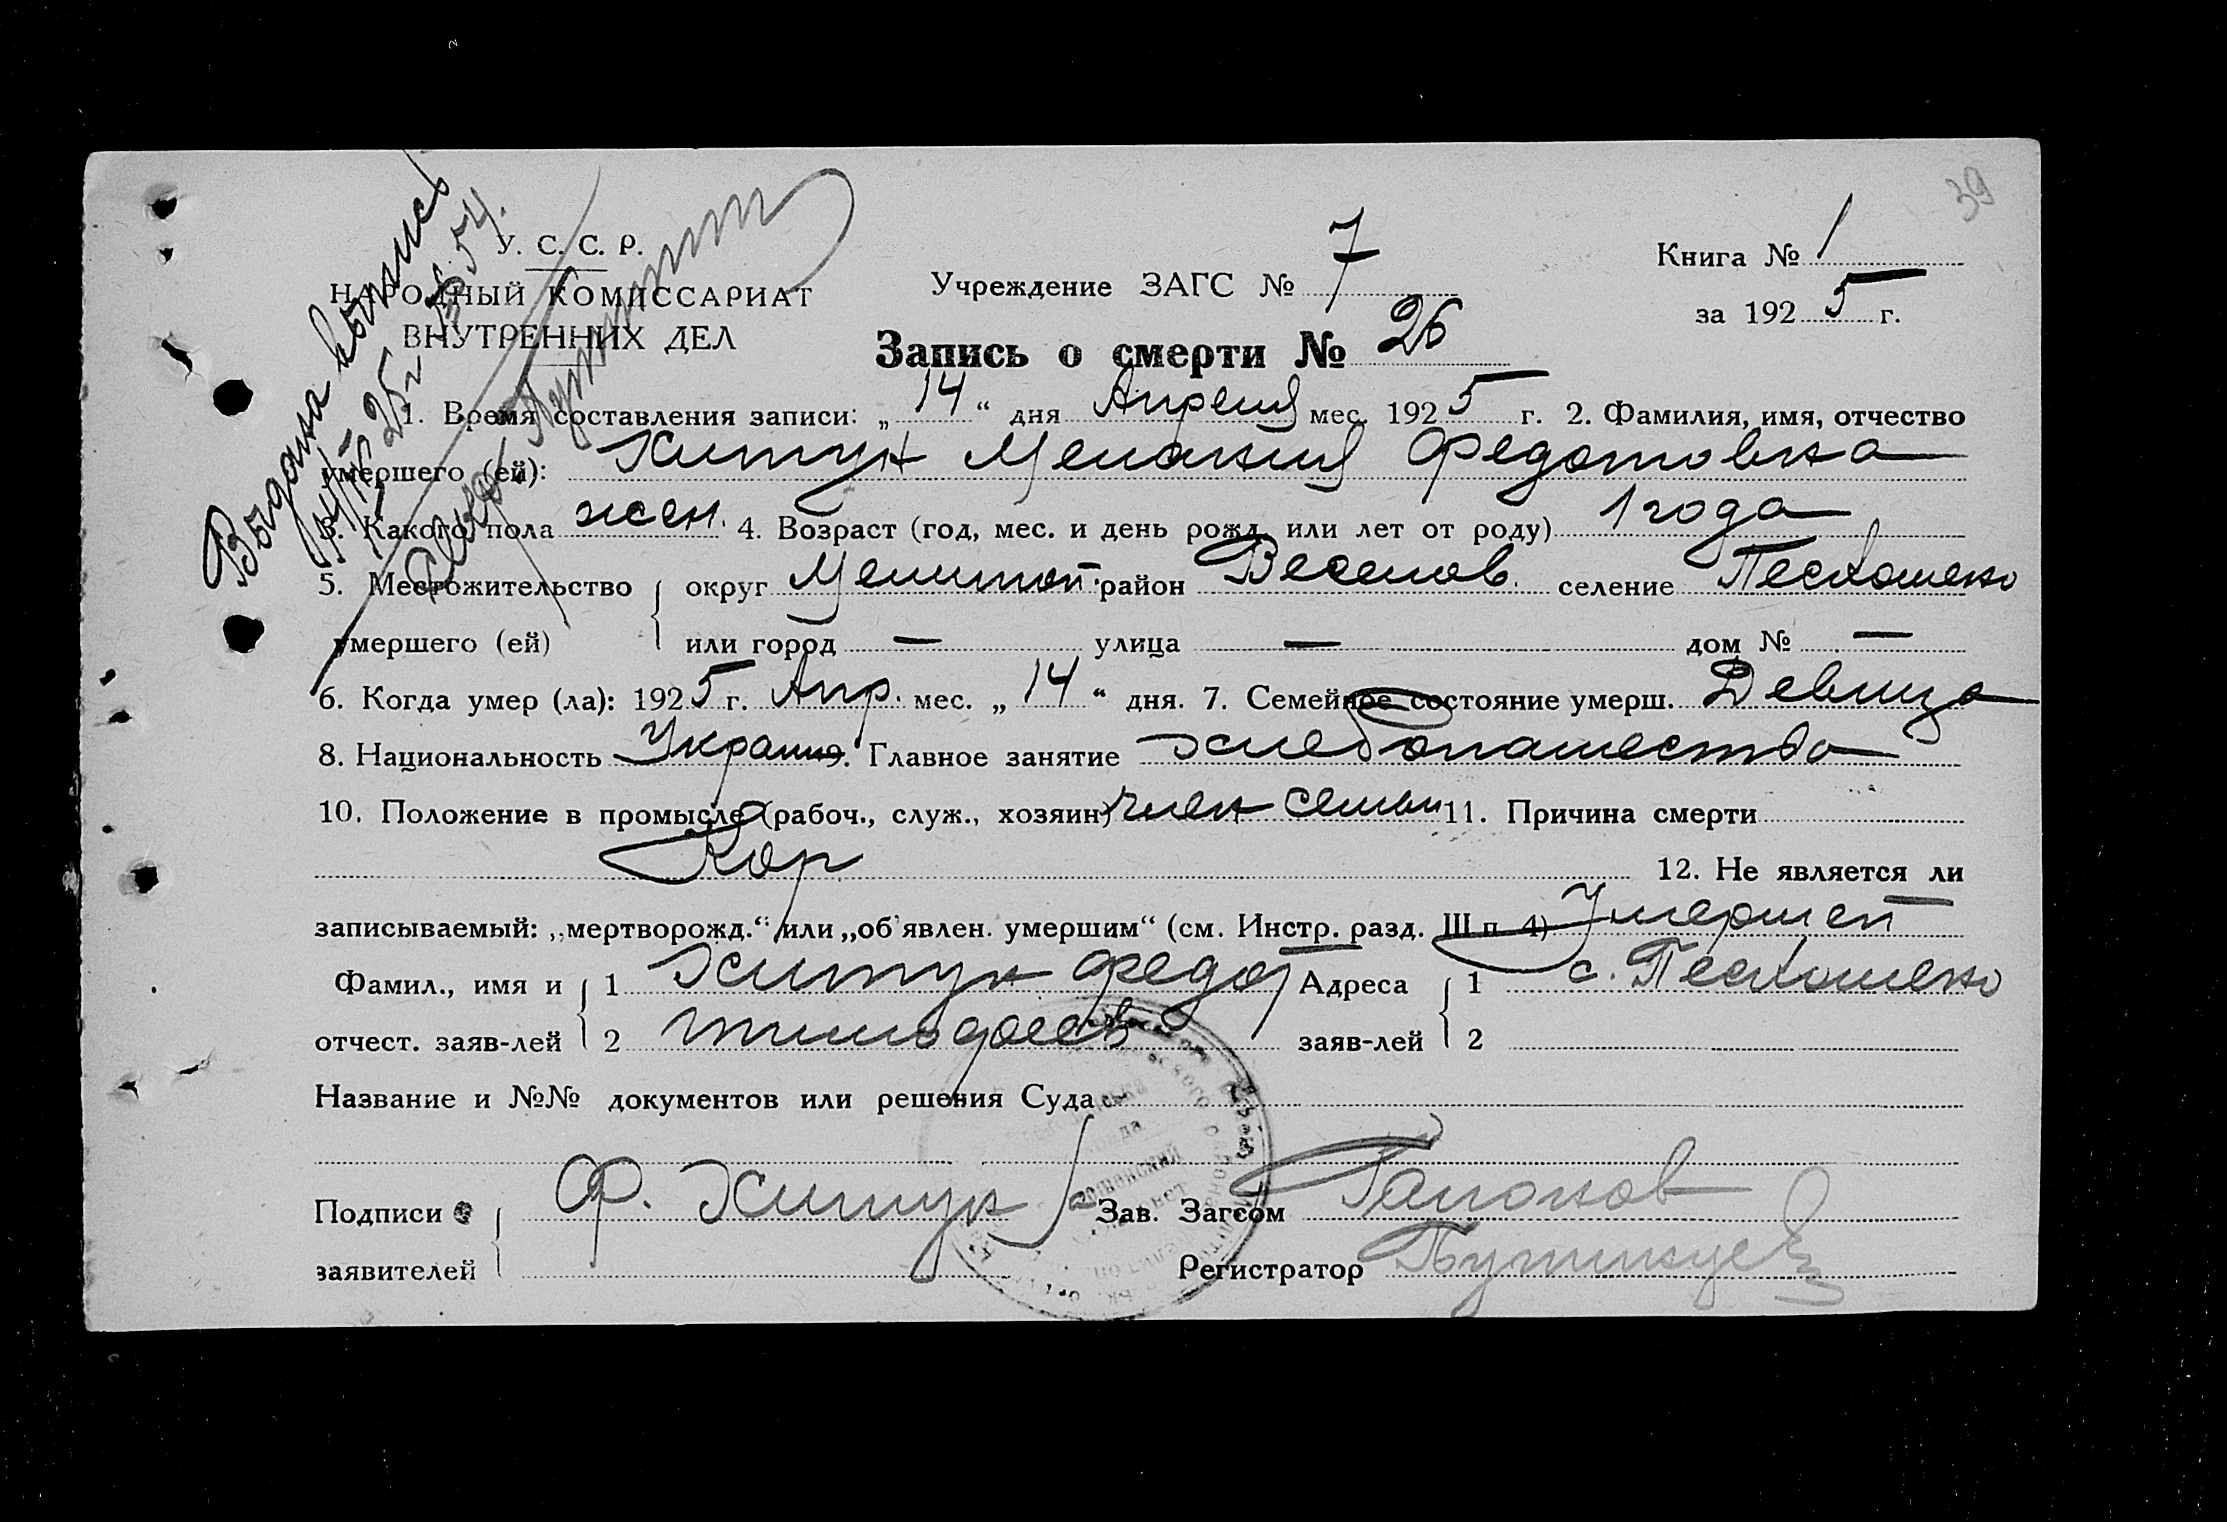 39
Выдана копись
14/IV 25г № 54.
У. С. С. Р.
НАРОДНЫЙ КОМИССАРИАТ
ВНУТРЕННИХ ДЕЛ
Учреждение ЗАГС № 7
Книга № 1
за 1925 г.
Запись о смерти № 26
1. Время составления записи: „14“ дня Апреля мес. 1925 г. 2. Фамилия, имя, отчество
умершего (ей): Хитук Мелания Федотовна
3. Какого пола жен. 4. Возраст (год, мес. и день рожд. или лет от роду) 1 года
5. Местожительство округ Мелитоп. район Веселов. селение Пескошено
умершего (ей) или город — улица — дом № —
6. Когда умер (ла): 1925 г. Апр. мес. „14“ дня. 7. Семейное состояние умерш. Девица
8. Национальность Украин 9. Главное занятие хлебопашество
10. Положение в промысле (рабоч., служ., хозяин) член семьи 11. Причина смерти
Кор 12. Не является ли
записываемый: „мертворожд.“ или „об'явлен. умершим“ (см. Инстр. разд. III п 4) Умершей
Фамил., имя и 1 Хитук Федот Адреса 1 с. Пескошено
отчест. заяв-лей 2 Тимофеев заяв-лей 2
Название и №№ документов или решения Суда
Подписи Ф. Хитук Зав. Загсом Гапонов
заявителей Регистратор